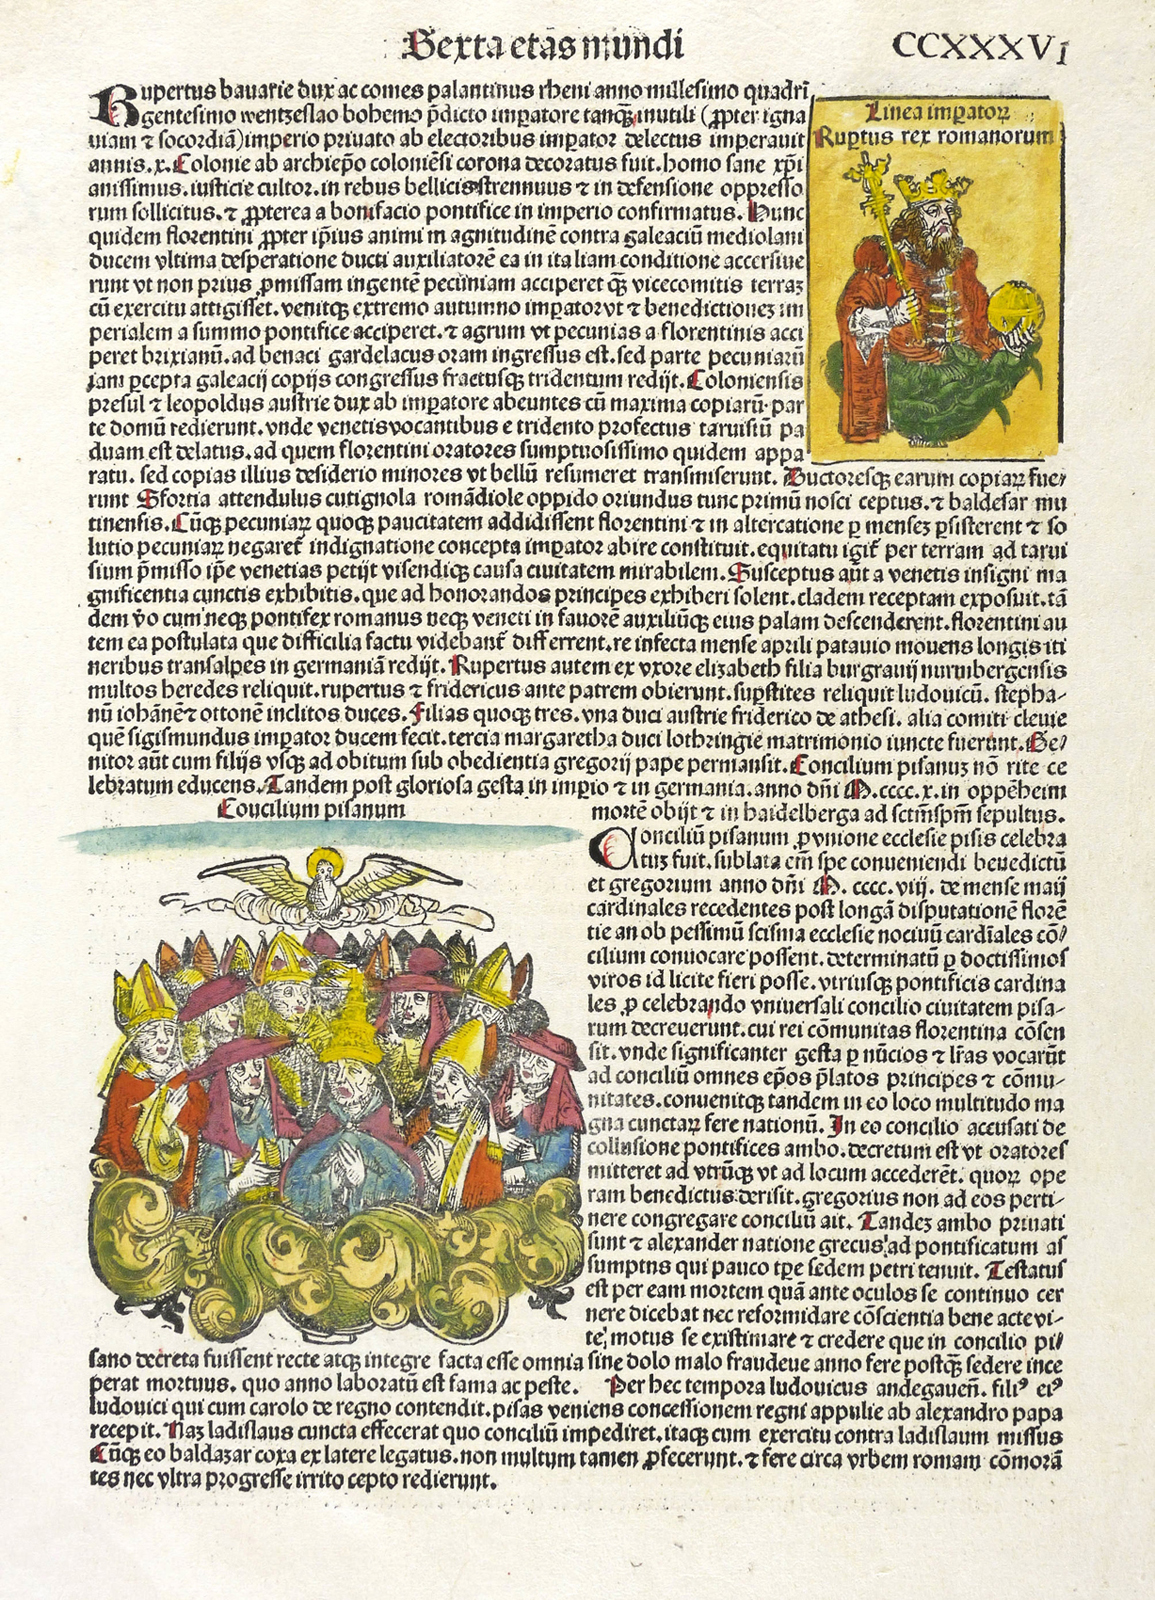 Sexta etas mundi
CCXXXVI
Rupertus bavarie dux ac comes palantinus rheni anno millesimo quadri
gentesimo wentzeslao bohemo p̄dicto imꝑatore tanqꝫ inutili (ꝓpter igna
uiam ⁊ socordiā) imperio priuato ab electoribus imꝑator delectus imperauit
annis. x. Colonie ab archiep̄o coloniēsi corona decoratus fuit. homo sane xp̄i
anissimus. iusticie cultor. in rebus bellicis strennuus ⁊ in defensione oppresso
rum sollicitus. ⁊ ꝓpterea a bonifacio pontifice in imperio confirmatus. Hunc
quidem florentini ꝓpter ip̄ius animi magnitudinē contra galeaciū mediolani
ducem vltima desperatione ducti auxiliatorē ea in italiam conditione accersiue
runt vt non prius ꝓmissam ingentē pecuniam acciperet qꝫ vicecomitis terraꝫ
cū exercitu attigisset. venitqꝫ extremo autumno imꝑator vt ⁊ benedictioneꝫ im
perialem a summo pontifice acciperet. ⁊ agrum vt pecunias a florentinis acci
peret brixianū. ad benaci gardelacus oram ingressus est. sed parte pecuniarū
iam ꝑcepta galeacij copijs congressus fractusqꝫ tridentum redijt. Coloniensis
presul ⁊ leopoldus austrie dux ab imꝑatore abeuntes cū maxima copiarū par
te domū redierunt. vnde venetis vocantibus e tridento profectus taruisiū pa
duam est delatus. ad quem florentini oratores sumptuosissimo quidem appa
ratu. sed copias illius desiderio minores vt bellū resumeret transmiserunt. Ductoresqꝫ earum copiaꝝ fue
runt Sfortia attendulus cutignola romādiole oppido oriundus tunc primū nosci ceptus. ⁊ baldesar mu
tinensis. Cūqꝫ pecuniaꝝ quoqꝫ paucitatem addidissent florentini ⁊ in altercatione ꝑ menseꝫ ꝑsisterent ⁊ so
lutio pecuniaꝝ negaret̄ indignatione concepta imꝑator abire constituit. equitatu igit̄ per terram ad tarui
sium p̄misso ip̄e venetias petijt visendiqꝫ causa ciuitatem mirabilem. Susceptus aūt a venetis insigni ma
gnificentia cunctis exhibitis. que ad honorandos principes exhiberi solent. cladem receptam exposuit. tā
dem v̄o cum neqꝫ pontifex romanus neqꝫ veneti in fauorē auxiliūqꝫ eius palam descenderent. florentini au
tem ea postulata que difficilia factu videbant̄ differrent. re infecta mense aprili patauio mouens longis iti
neribus transalpes in germaniā redijt. Rupertus autem ex vxore elizabeth filia burgrauij nurmbergensis
multos heredes reliquit. rupertus ⁊ fridericus ante patrem obierunt. suꝑstites reliquit ludouicū. stepha-
nū iohānē ⁊ ottonē inclitos duces. Filias quoqꝫ tres. vna duci austrie friderico de athesi. alia comiti cleuie
quē sigismundus imꝑator ducem fecit. tercia margaretha duci lothringie matrimonio iuncte fuerunt. Ge-
nitor aūt cum filijs vsqꝫ ad obitum sub obedientia gregorij pape permansit. Concilium pisanuꝫ nō rite ce
lebratum educens. Tandem post gloriosa gesta in imꝑio ⁊ in germania. anno dn̄i M.cccc.x. in oppēheim
mortē obijt ⁊ in haidelberga ad sctm̄ spm̄ sepultus.
Linea imꝑatoꝝ
Ruꝑtus rex romanorum
Concilium pisanum
Conciliū pisanum ꝓ vnione ecclesie pisis celebra
tuꝫ fuit. sublata em̄ spe conueniendi benedictū
et gregorium anno dn̄i M. cccc. viij. de mense maij
cardinales recedentes post longā disputationē florē
tie an ob pessimū scisma ecclesie nociuū cardīales cō-
cilium conuocare possent. determinatū ꝑ doctissimos
viros id licite fieri posse. vtriusqꝫ pontificis cardina
les ꝓ celebrando vniuersali concilio ciuitatem pisa-
rum decreuerunt. cui rei cōmunitas florentina cōsen
sit. vnde significanter gesta ꝑ nūcios ⁊ lr̄as vocarūt
ad conciliū omnes ep̄os p̄latos principes ⁊ cōmu-
nitates. conuenitqꝫ tandem in eo loco multitudo ma
gna cunctaꝝ fere nationū. In eo concilio accusati de
collusione pontifices ambo. decretum est vt oratores
mitteret ad vtrūqꝫ vt ad locum accederēt. quoꝝ ope
ram benedictus derisit. gregorius non ad eos perti-
nere congregare conciliū ait. Tandeꝫ ambo priuati
sunt ⁊ alexander natione grecus ad pontificatum as
sumptus qui pauco tꝑe sedem petri tenuit. Testatus
est per eam mortem quā ante oculos se continuo cer
nere dicebat nec reformidare cōscientia bene acte vi-
te motus se existimare ⁊ credere que in concilio pi-
sano decreta fuissent recte atqꝫ integre facta esse omnia sine dolo malo fraudeue anno fere postqꝫ sedere ince
perat mortuus. quo anno laboratū est fama ac peste. Per hec tempora ludouicus andegaueñ. filiꝰ eiꝰ
ludouici qui cum carolo de regno contendit. pisas veniens concessionem regni appulie ab alexandro papa
recepit. Naꝫ ladislaus cuncta effecerat quo conciliū impediret. itaqꝫ cum exercitu contra ladislaum missus
Cūqꝫ eo baldazar coxa ex latere legatus. non multum tamen ꝓfecerunt. ⁊ fere circa vrbem romam cōmorā
tes nec vltra progresse irrito cepto redierunt.